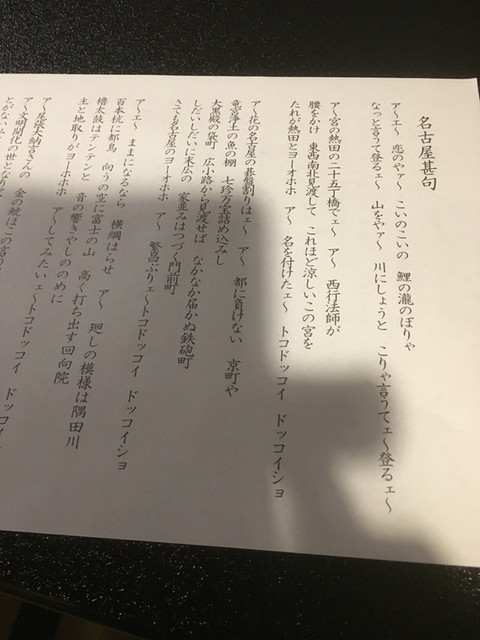 名古屋甚句
ア〜エ〜 恋のやァ〜 こいのこいの 鯉の瀧のぼりゃ
なっと言うて登るェ〜 山をやァ〜 川にしょうと こりゃ言うてェ〜登るェ〜
ア〜宮の熱田の二十五丁橋でェ〜 ア〜 西行法師が
腰をかけ 東西南北見渡して これほど涼しいこの宮を
たれが熱田とヨーオホホ ア〜 名を付けたェ〜 トコドッコイ ドッコイショ
ア〜花の名古屋の碁盤割りはェ〜 ア〜 都に負けない 京町や
竜宮浄土の魚の棚 七珍万宝詰め込みし
大黒殿の袋町 広小路から見渡せば なかなか届かぬ鉄砲町
しだいしだいに末広の 家並みはつづく門前町
さても名古屋のヨーオホホ ア〜 繁昌ぶりェ〜トコドッコイ ドッコイショ
ア〜エ〜 ままになるなら 横綱はらせ ア〜 廻しの模様は隅田川
百本杭に都鳥 向うの空に富士の山 高く打ち出す回向院
櫓太鼓はテンテンと 音の響きやしののめに
主と地取りがヨーホホホ ア〜してみたいェ〜トコドッコイ ドッコイショ
ア〜尾張大納言さんの 金の鯱はこの
ア〜文明開化の世となりて